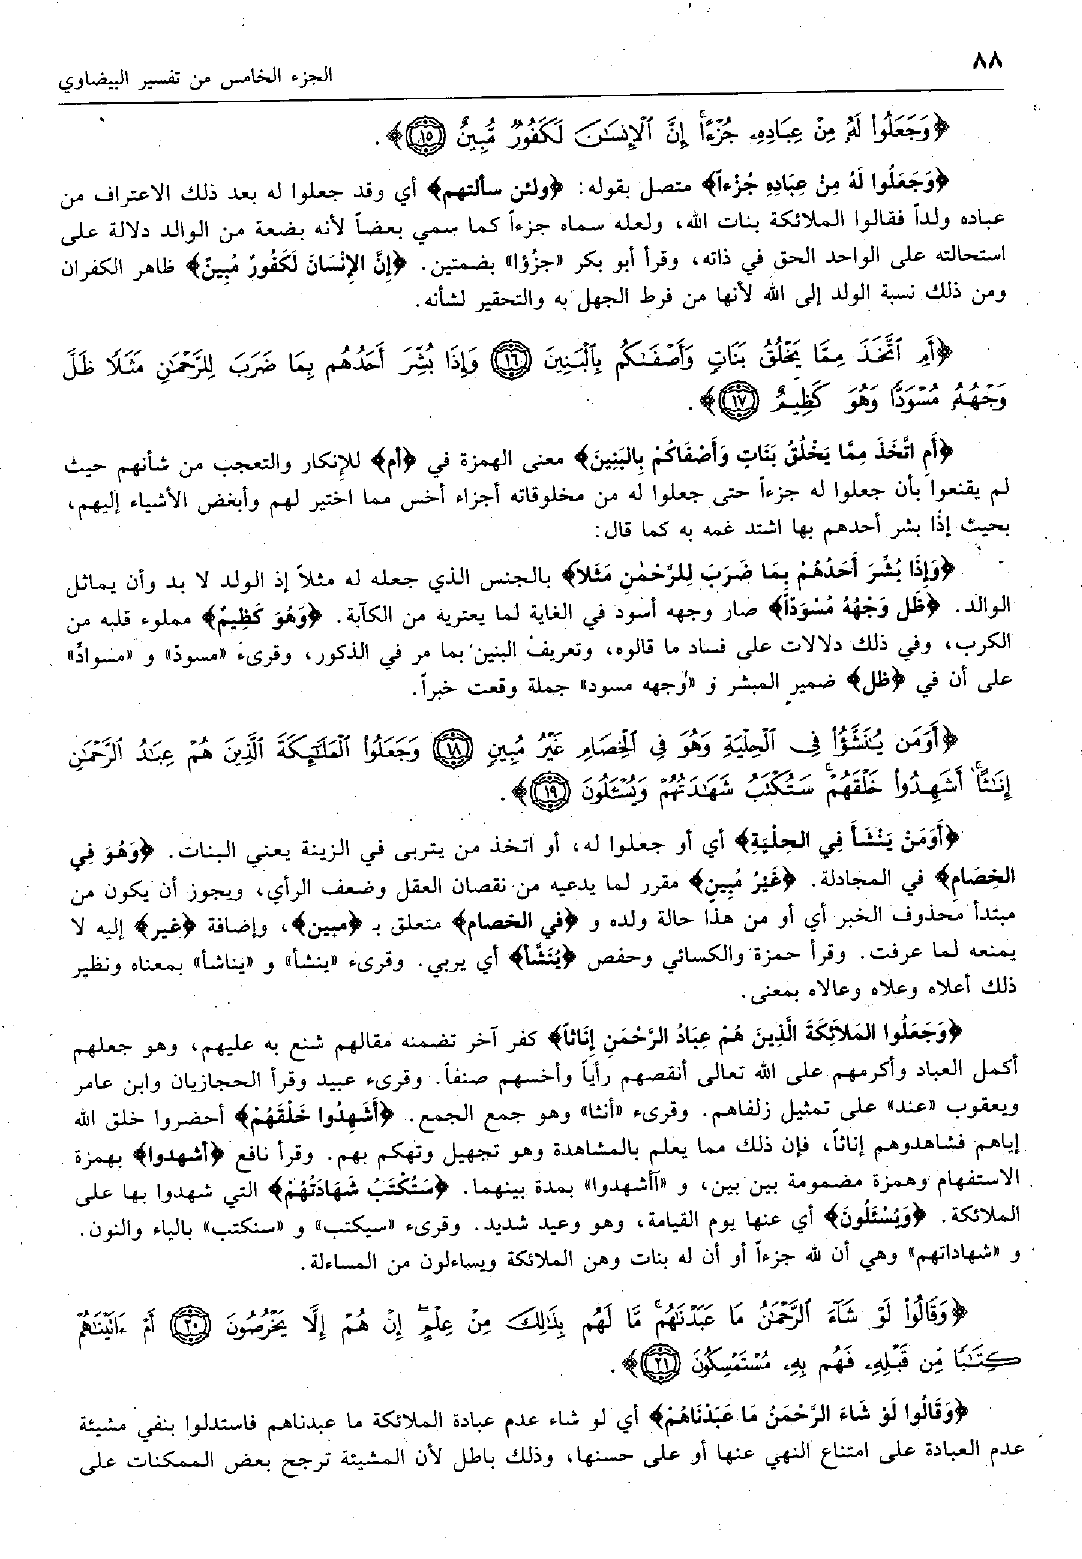 ٨٨
الجزء الخامس من تفسير البيضاوي
﴿وَجَعَلُوا۟ لَهُۥ مِنْ عِبَادِهِۦ جُزْءًا ۚ إِنَّ ٱلْإِنسَـٰنَ لَكَفُورٌ مُّبِينٌ ⑮﴾.
﴿وَجَعَلُوا لَهُ مِنْ عِبَادِهِ جُزْءاً﴾ متصل بقوله: ﴿ولئن سألتهم﴾ أي وقد جعلوا له بعد ذلك الاعتراف من
عباده ولداً فقالوا الملائكة بنات الله، ولعله سماه جزءاً كما سمي بعضاً لأنه بضعة من الوالد دلالة على
استحالته على الواحد الحق في ذاته، وقرأ أبو بكر «جزُؤا» بضمتين. ﴿إِنَّ الإِنْسَانَ لَكَفُورٌ مُبِينٌ﴾ ظاهر الكفران
ومن ذلك نسبة الولد إلى الله لأنها من فرط الجهل به والتحقير لشأنه.
﴿أَمِ ٱتَّخَذَ مِمَّا يَخْلُقُ بَنَاتٍ وَأَصْفَىٰكُم بِٱلْبَنِينَ ⑯ وَإِذَا بُشِّرَ أَحَدُهُم بِمَا ضَرَبَ لِلرَّحْمَـٰنِ مَثَلًا ظَلَّ
وَجْهُهُۥ مُسْوَدًّا وَهُوَ كَظِيمٌ ⑰﴾.
﴿أَمِ اتَّخَذَ مِمَّا يَخْلُقُ بَنَاتٍ وَأَصْفَاكُمْ بِالبَنِينَ﴾ معنى الهمزة في ﴿أم﴾ للإِنكار والتعجب من شأنهم حيث
لم يقنعوا بأن جعلوا له جزءاً حتى جعلوا له من مخلوقاته أجزاء أخس مما اختير لهم وأبغض الأشياء إليهم،
بحيث إذا بشر أحدهم بها اشتد غمه به كما قال:
﴿وَإِذَا بُشِّرَ أَحَدُهُمْ بِمَا ضَرَبَ لِلرَّحْمٰنِ مَثَلاً﴾ بالجنس الذي جعله له مثلاً إذ الولد لا بد وأن يماثل
الوالد. ﴿ظَل وَجْهُهُ مُسْوَدّاً﴾ صار وجهه أسود في الغاية لما يعتريه من الكآبة. ﴿وَهُوَ كَظِيمٌ﴾ مملوء قلبه من
الكرب، وفي ذلك دلالات على فساد ما قالوه، وتعريف البنين بما مر في الذكور، وقرىء «مسودّ» و «مسوادّ»
على أن في ﴿ظل﴾ ضمير المبشر و «وجهه مسود» جملة وقعت خبراً.
﴿أَوَمَن يُنَشَّؤُا۟ فِى ٱلْحِلْيَةِ وَهُوَ فِى ٱلْخِصَامِ غَيْرُ مُبِينٍ ⑱ وَجَعَلُوا۟ ٱلْمَلَـٰٓئِكَةَ ٱلَّذِينَ هُمْ عِبَـٰدُ ٱلرَّحْمَـٰنِ
إِنَـٰثًا ۚ أَشَهِدُوا۟ خَلْقَهُمْ ۚ سَتُكْتَبُ شَهَـٰدَتُهُمْ وَيُسْـَٔلُونَ ⑲﴾.
﴿أَوَمَنْ يَنْشَأَ فِي الحِلْيَةِ﴾ أي أو جعلوا له، أو اتخذ من يتربى في الزينة يعني البنات. ﴿وَهُوَ فِي
الخِصَامِ﴾ في المجادلة. ﴿غَيْرُ مُبِينٍ﴾ مقرر لما يدعيه من نقصان العقل وضعف الرأي، ويجوز أن يكون من
مبتدأ محذوف الخبر أي أو من هذا حالة ولده و ﴿في الخصام﴾ متعلق بـ ﴿مبين﴾، وإضافة ﴿غير﴾ إليه لا
يمنعه لما عرفت. وقرأ حمزة والكسائي وحفص ﴿يُنَشَّأ﴾ أي يربي. وقرىء «ينشأ» و «يناشأ» بمعناه ونظير
ذلك أعلاه وعلاه وعالاه بمعنى.
﴿وَجَعَلُوا المَلاَئِكَةَ الَّذِينَ هُمْ عِبَادُ الرَّحْمٰنِ إِنَاثاً﴾ كفر آخر تضمنه مقالهم شنع به عليهم، وهو جعلهم
أكمل العباد وأكرمهم على الله تعالى أنقصهم رأياً وأخسهم صنفاً. وقرىء عبيد وقرأ الحجازيان وابن عامر
ويعقوب «عند» على تمثيل زلفاهم. وقرىء «أنثا» وهو جمع الجمع. ﴿أَشَهِدُوا خَلْقَهُمْ﴾ أحضروا خلق الله
إياهم فشاهدوهم إناثاً، فإن ذلك مما يعلم بالمشاهدة وهو تجهيل وتهكم بهم. وقرأ نافع ﴿أشهدوا﴾ بهمزة
الاستفهام وهمزة مضمومة بين بين، و «أأشهدوا» بمدة بينهما. ﴿سَتُكْتَبُ شَهَادَتُهُمْ﴾ التي شهدوا بها على
الملائكة. ﴿وَيُسْئَلُونَ﴾ أي عنها يوم القيامة، وهو وعيد شديد. وقرىء «سيكتب» و «سنكتب» بالياء والنون.
و «شهاداتهم» وهي أن لله جزءاً أو أن له بنات وهن الملائكة ويساءلون من المساءلة.
﴿وَقَالُوا۟ لَوْ شَآءَ ٱلرَّحْمَـٰنُ مَا عَبَدْنَـٰهُم ۗ مَّا لَهُم بِذَٰلِكَ مِنْ عِلْمٍ ۖ إِنْ هُمْ إِلَّا يَخْرُصُونَ ⑳ أَمْ ءَاتَيْنَـٰهُمْ
كِتَـٰبًا مِّن قَبْلِهِۦ فَهُم بِهِۦ مُسْتَمْسِكُونَ ㉑﴾.
﴿وَقَالُوا لَوْ شَاءَ الرَّحْمٰنُ مَا عَبَدْنَاهُمْ﴾ أي لو شاء عدم عبادة الملائكة ما عبدناهم فاستدلوا بنفي مشيئة
عدم العبادة على امتناع النهي عنها أو على حسنها، وذلك باطل لأن المشيئة ترجح بعض الممكنات على